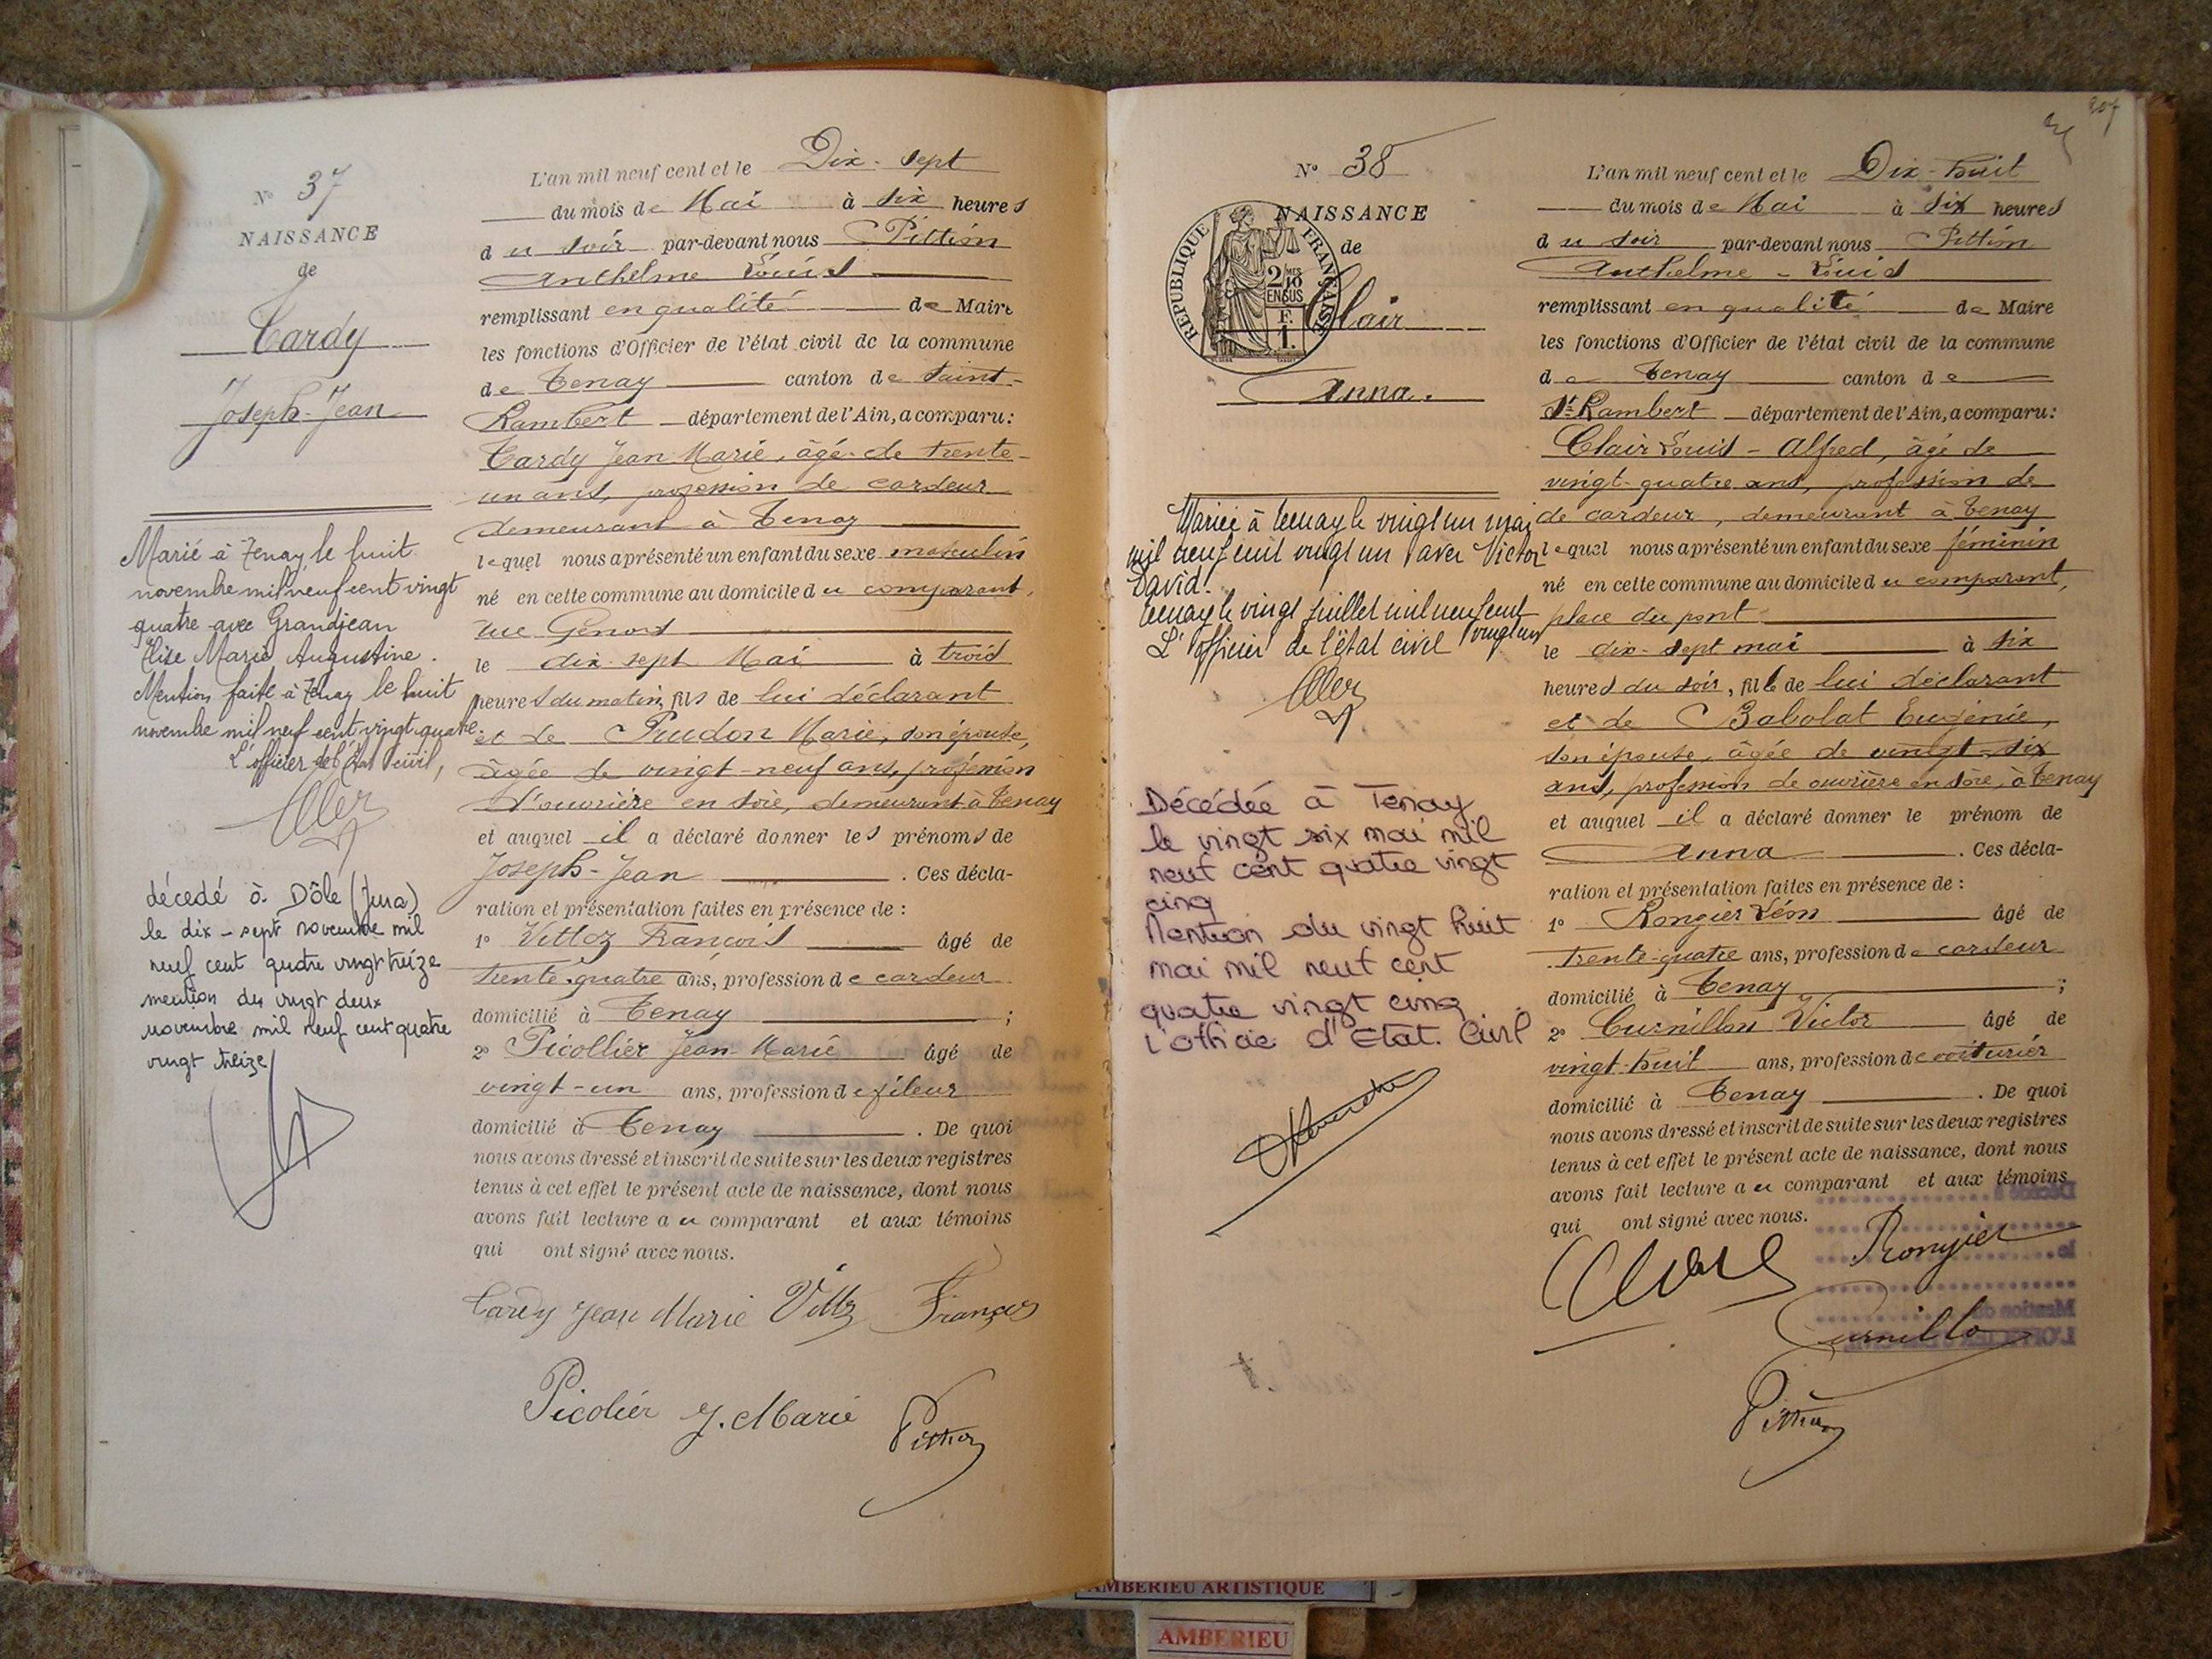 N° 37
NAISSANCE
de
Tardy
Joseph-Jean
Marié à Tenay, le huit
novembre mil neuf cent vingt
quatre avec Grandjean
Elise Marie Augustine.
Mention faite à Tenay le huit
novembre mil neuf cent vingt quatre
L'officier de l'Etat civil,
décedé à Dôle (Jura)
le dix-sept novembre mil
neuf cent quatre vingt treize
mention du vingt deux
novembre mil neuf cent quatre
vingt treize
L'an mil neuf cent et le Dix-sept
du mois de Mai à six heures
du soir par-devant nous Pittion
Anthelme Louis
remplissant en qualité de Maire
les fonctions d'Officier de l'état civil de la commune
de Tenay canton de Saint-
Rambert département de l'Ain, a comparu:
Tardy Jean Marie, âgé de trente-
un ans, profession de cardeur
demeurant à Tenay
lequel nous a présenté un enfant du sexe masculin
né en cette commune au domicile du comparant,
rue Genois
le dix-sept Mai à trois
heures du matin, fils de lui déclarant
et de Prudon Marie, son épouse,
âgée de vingt-neuf ans, profession
d'ouvrière en soie, demeurant à Tenay
et auquel il a déclaré donner les prénoms de
Joseph-Jean . Ces décla-
ration et présentation faites en présence de :
1° Vittoz François âgé de
trente-quatre ans, profession de cardeur
domicilié à Tenay ;
2° Picollier Jean-Marie âgé de
vingt-un ans, profession de fileur
domicilié à Tenay . De quoi
nous avons dressé et inscrit de suite sur les deux registres
tenus à cet effet le présent acte de naissance, dont nous
avons fait lecture au comparant et aux témoins
qui ont signé avec nous.
Tardy Jean Marie Vittoz François
Picolier J. Marie Pittion
207
N° 38
NAISSANCE
de
REPUBLIQUE FRANÇAISE
2/10 MES
EN SUS
F.
1.
Clair
Anna.
Mariée à Tenay le vingt un mai
mil neuf cent vingt un avec Victor
David.
Tenay le vingt juillet mil neuf cent
vingt un
L'officier de l'état civil
Décédée à Tenay
le vingt six mai mil
neuf cent quatre vingt
cinq
Mention du vingt huit
mai mil neuf cent
quatre vingt cinq
l'officie d'Etat. Civil
L'an mil neuf cent et le Dix-huit
du mois de Mai à six heures
du soir par-devant nous Pittion
Anthelme-Louis
remplissant en qualité de Maire
les fonctions d'Officier de l'état civil de la commune
de Tenay canton de
St Rambert département de l'Ain, a comparu:
Clair Louis-Alfred, âgé de
vingt-quatre ans, profession de
de cardeur, demeurant à Tenay
lequel nous a présenté un enfant du sexe féminin
né en cette commune au domicile du comparant,
place du pont
le dix-sept mai à six
heures du soir, fille de lui déclarant
et de Babolat Eugénie,
son épouse, âgée de vingt-six
ans, profession de ouvrière en soie, à Tenay
et auquel il a déclaré donner le prénom de
Anna . Ces décla-
ration et présentation faites en présence de :
1° Rongier Léon âgé de
trente-quatre ans, profession de cardeur
domicilié à Tenay ;
2° Curnillon Victor âgé de
vingt-huit ans, profession de voiturier
domicilié à Tenay . De quoi
nous avons dressé et inscrit de suite sur les deux registres
tenus à cet effet le présent acte de naissance, dont nous
avons fait lecture au comparant et aux témoins
qui ont signé avec nous.
Clair Rongier
Pittion
AMBERIEU ARTISTIQUE
AMBERIEU